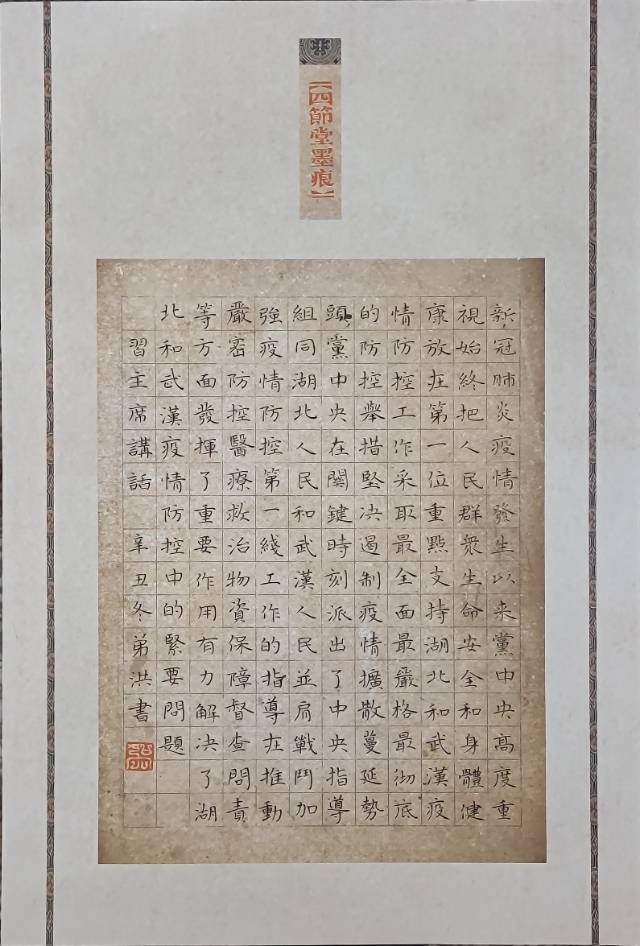 【四節堂墨痕】
新冠肺炎疫情發生以来黨中央高度重
視始終把人民群衆生命安全和身體健
康放在第一位重點支持湖北和武漢疫
情防控工作采取最全面最嚴格最彻底
的防控舉措堅决遏制疫情擴散蔓延勢
頭黨中央在關鍵時刻派出了中央指導
組同湖北人民和武漢人民並肩戰鬥加
強疫情防控第一綫工作的指導在推動
嚴密防控醫療救治物資保障督查問責
等方面發揮了重要作用有力解决了湖
北和武漢疫情防控中的緊要問題
習主席講話 辛丑冬弟洪書